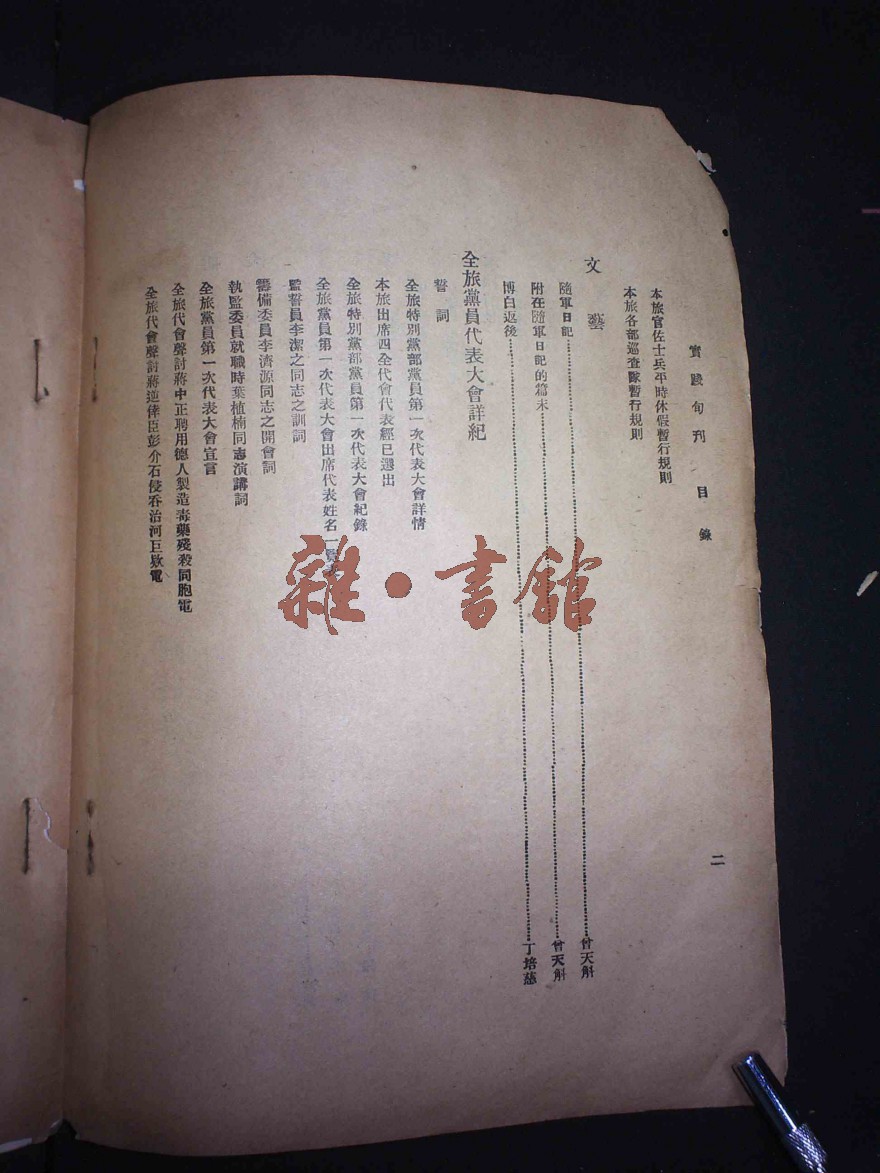 實踐旬刊 目錄 二
本旅官佐士兵平時休假暫行規則
本旅各部巡查隊暫行規則
文藝
隨軍日記……曾天斛
附在隨軍日記的篇末……曾天斛
博白返後……丁培慈
全旅黨員代表大會詳紀
誓詞
全旅特別黨部黨員第一次代表大會詳情
本旅出席四全代會代表經已選出
全旅特別黨部黨員第一次代表大會紀錄
全旅黨員第一次代表大會出席代表姓名一覽表
監誓員李潔之同志之訓詞
籌備委員李濟源同志之開會詞
執監委員就職時葉植楠同志演講詞
全旅黨員第一次代表大會宣言
全旅代會聲討蔣中正聘用德人製造毒藥殘殺同胞電
全旅代會聲討蔣逆倖臣彭介石侵吞治河巨欵電
雜·書館